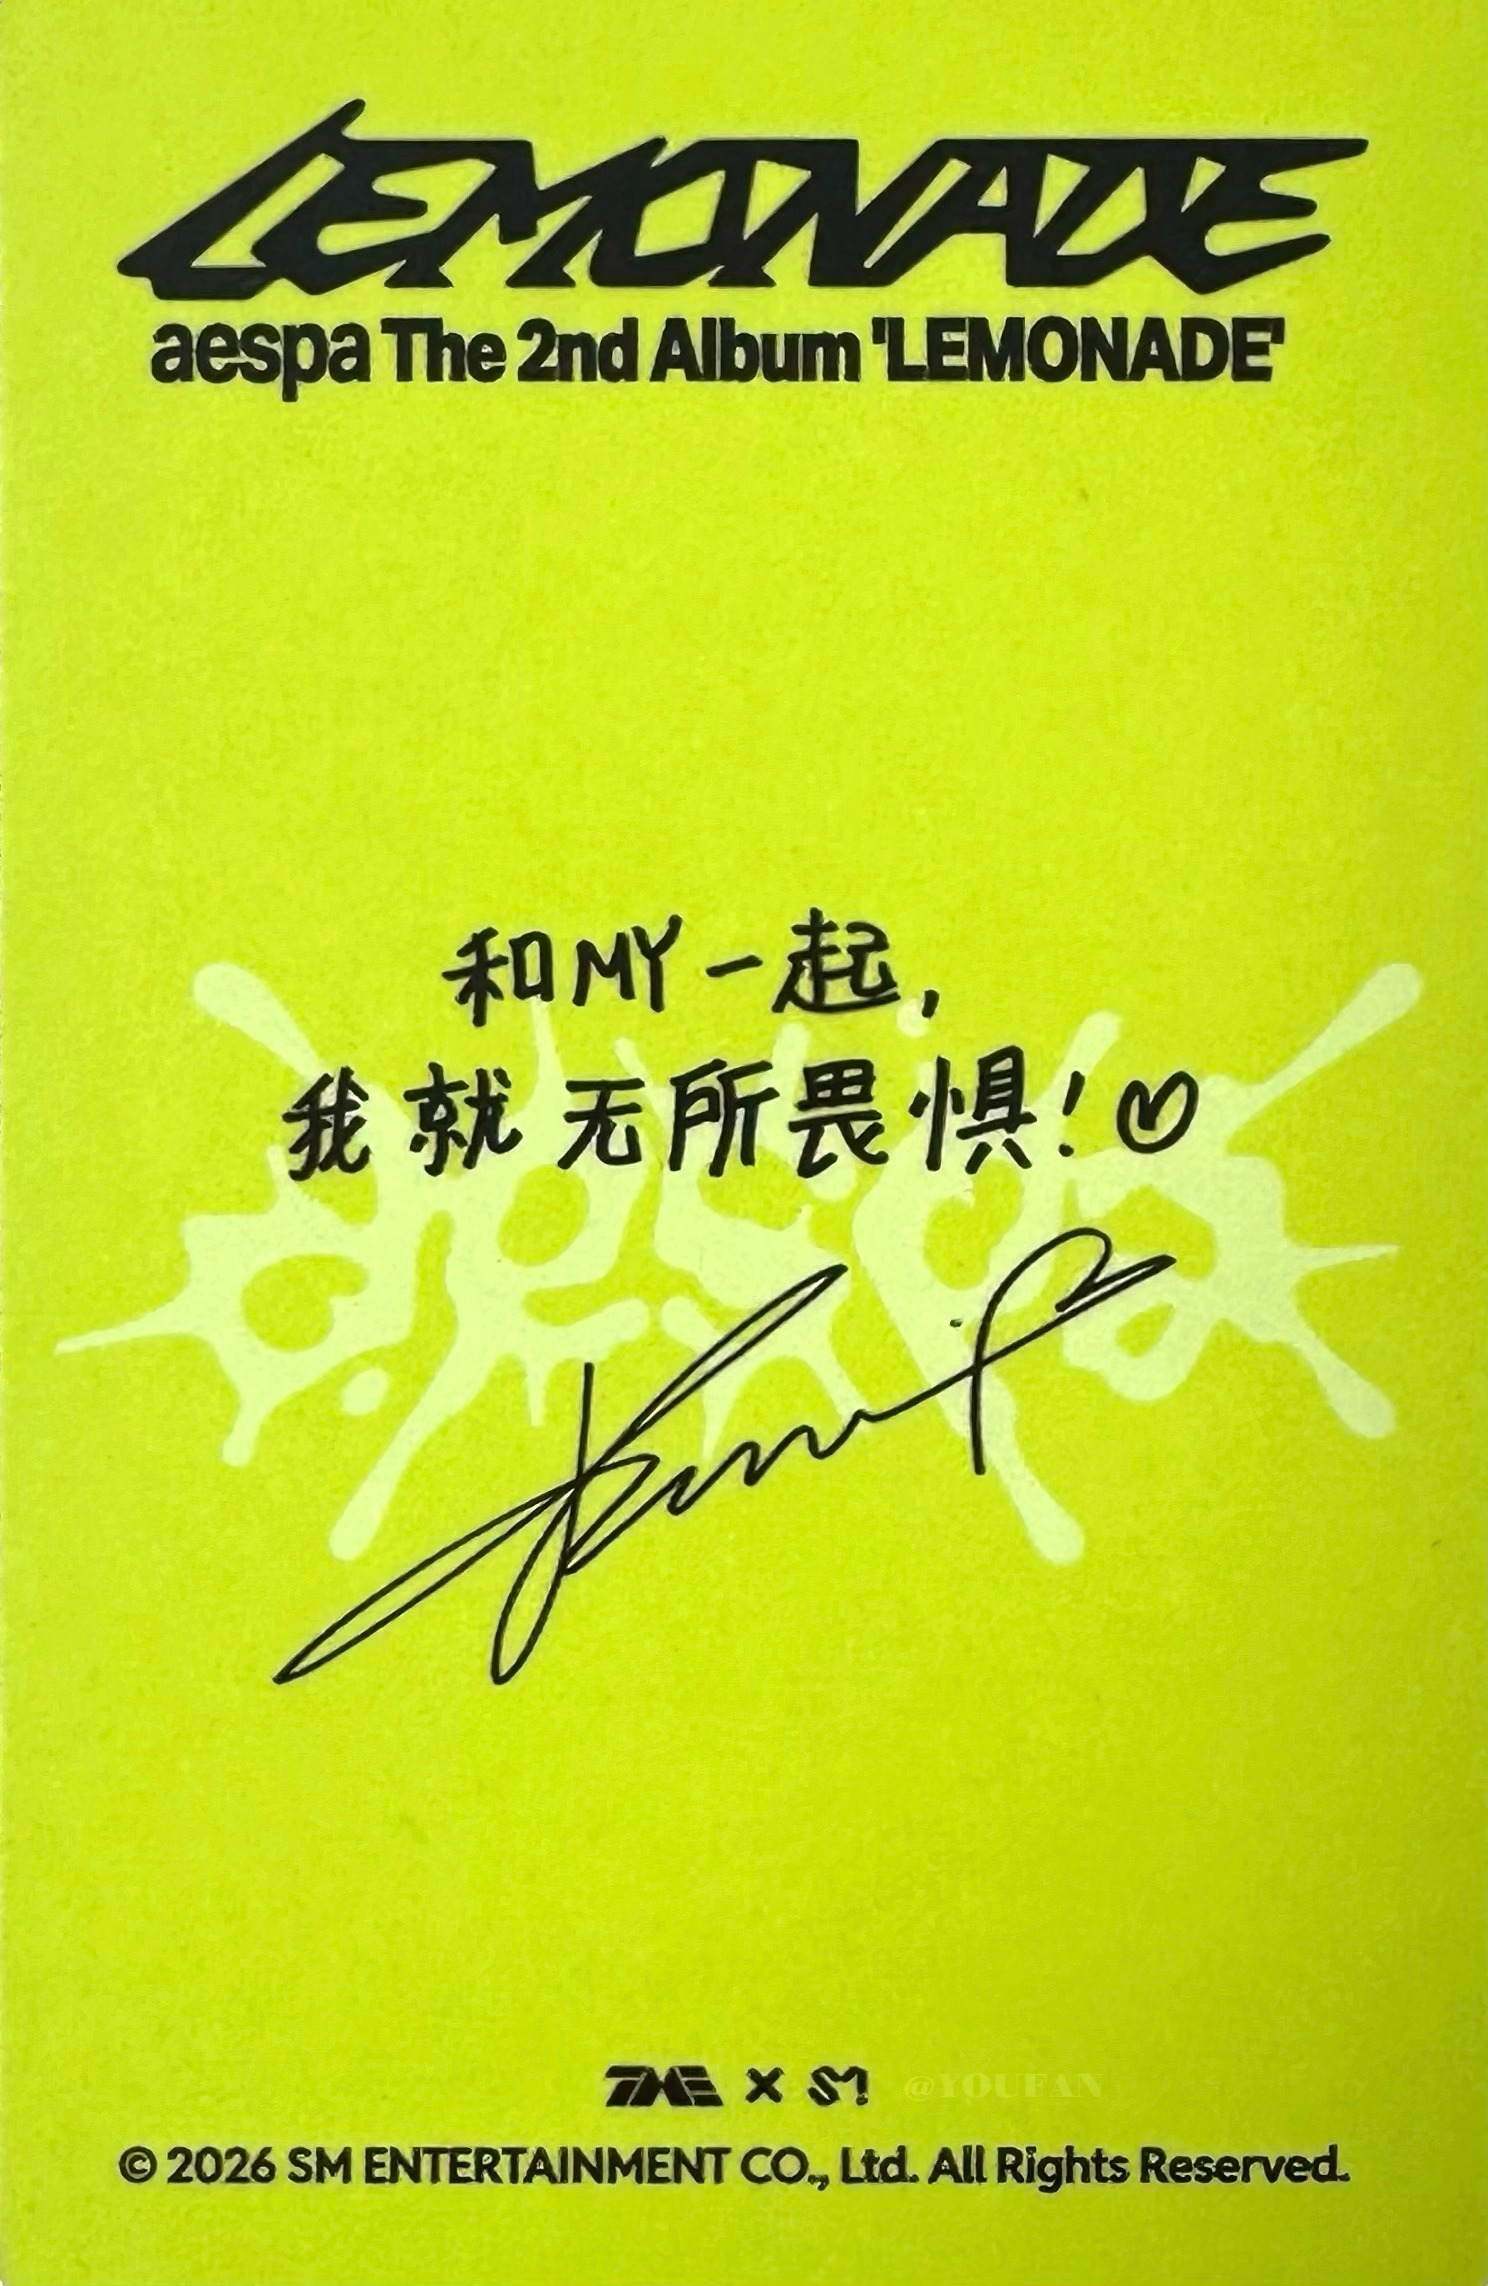 LEMONADE
aespa The 2nd Album 'LEMONADE'
和MY一起,
我就无所畏惧!♡
aespa
TME × SM
@YOUFAN
© 2026 SM ENTERTAINMENT CO., Ltd. All Rights Reserved.